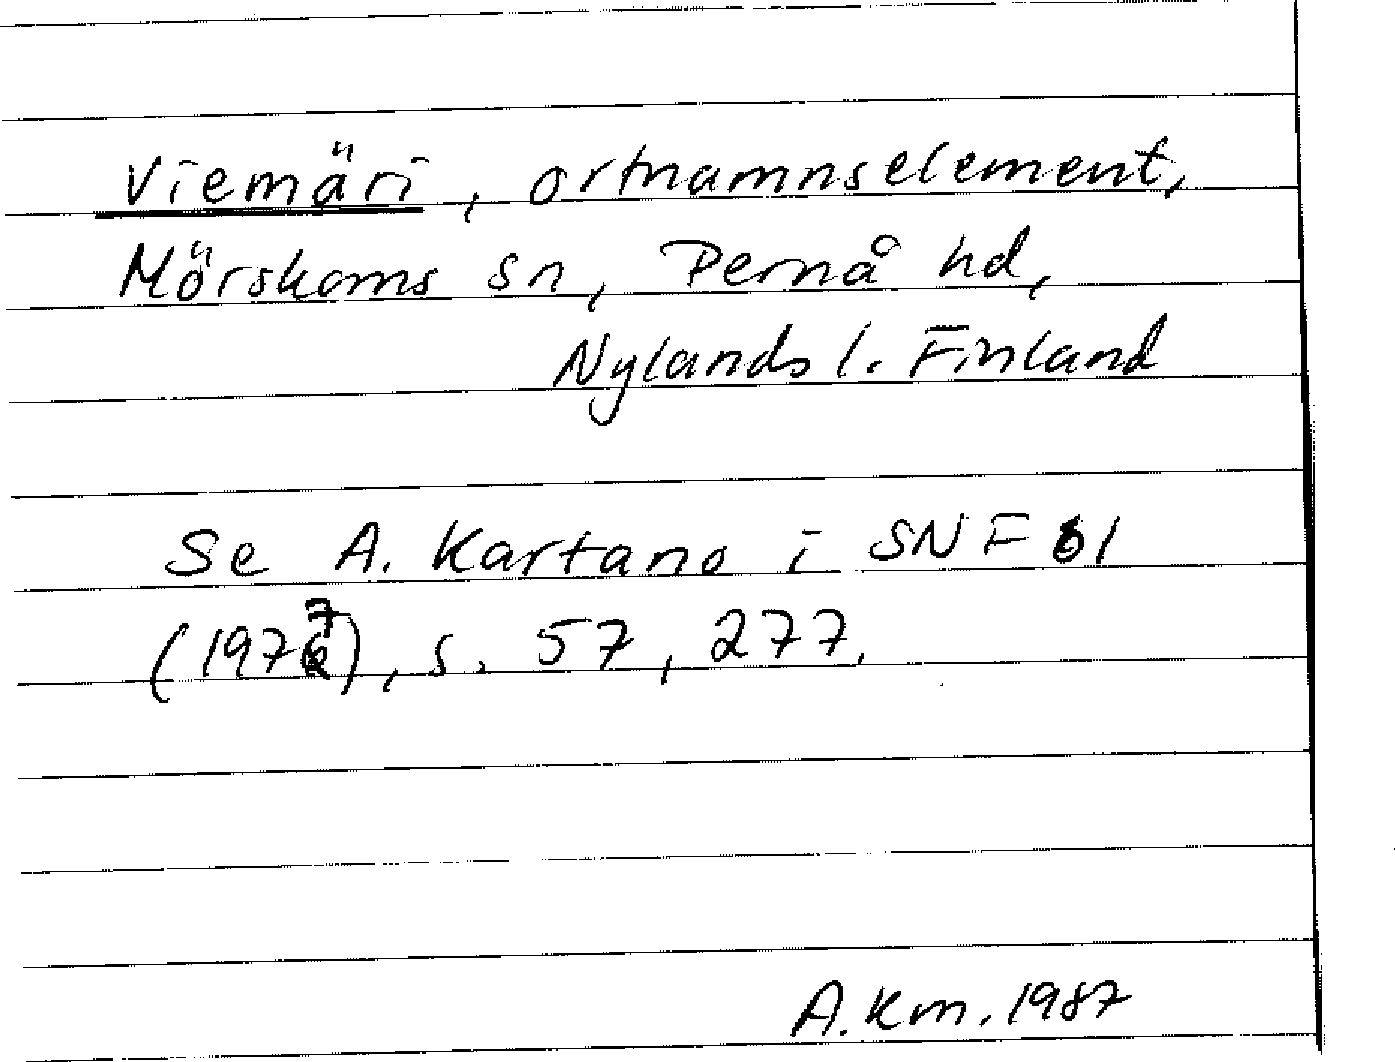 Viemäri, ortnamnselement,
Mörskoms sn, Pernå hd,
Nylands l. Finland
Se A. Kartano i SNF 61
(1977), s. 57, 277.
A. Km. 1987